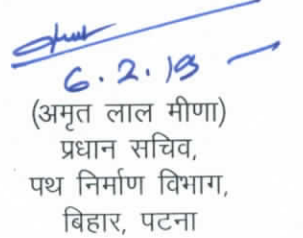 6.2.19
(अमृत लाल मीणा)
प्रधान सचिव,
पथ निर्माण विभाग,
बिहार, पटना